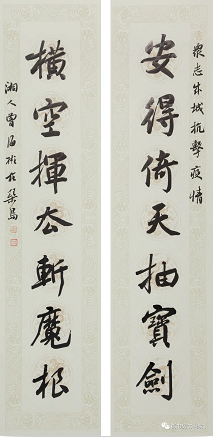 衆志成城抗擊疫情
安得倚天抽寶劍
橫空揮去斬魔根
湘人曾